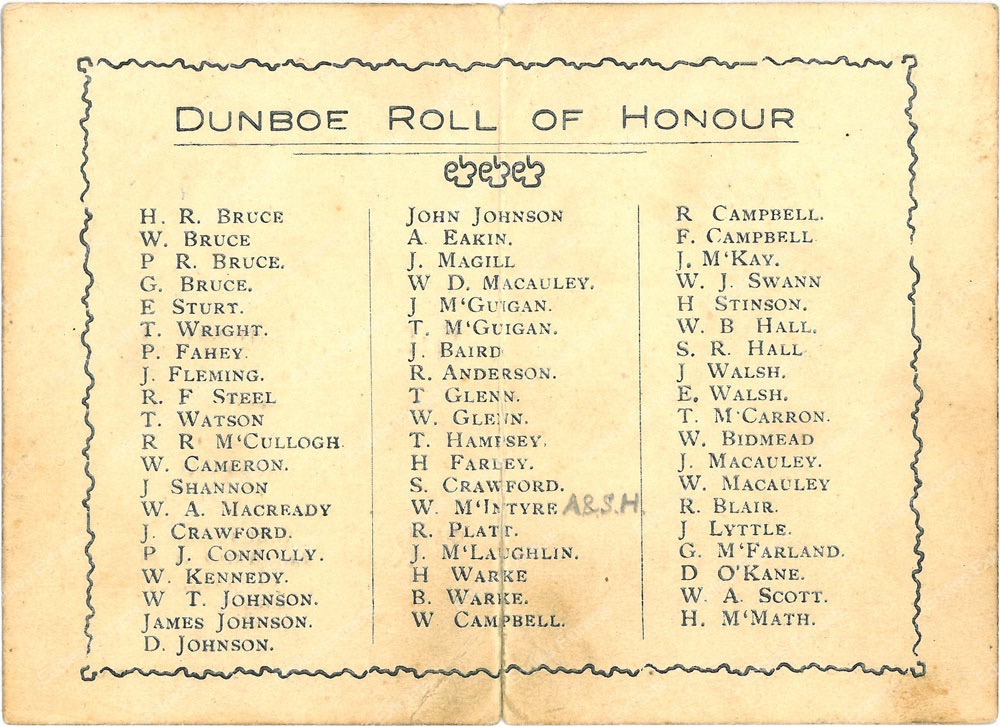 DUNBOE ROLL OF HONOUR
H. R. BRUCE
W. BRUCE
P R. BRUCE.
G. BRUCE.
E STURT.
T. WRIGHT.
P. FAHEY.
J. FLEMING.
R. F STEEL
T. WATSON
R R M‘CULLOGH.
W. CAMERON.
J SHANNON
W. A. MACREADY
J. CRAWFORD.
P J. CONNOLLY.
W. KENNEDY.
W T. JOHNSON.
JAMES JOHNSON.
D. JOHNSON.
JOHN JOHNSON
A. EAKIN.
J. MAGILL
W D. MACAULEY.
J M‘GUIGAN.
T. M‘GUIGAN.
J. BAIRD
R. ANDERSON.
T GLENN.
W. GLENN.
T. HAMPSEY.
H FARLEY.
S. CRAWFORD.
W. M‘INTYRE A&S.H.
R. PLATT.
J. M‘LAUGHLIN.
H WARKE
B. WARKE.
W CAMPBELL.
R CAMPBELL.
F. CAMPBELL
J. M‘KAY.
W. J. SWANN
H STINSON.
W. B HALL.
S. R. HALL
J WALSH.
E. WALSH.
T. M‘CARRON.
W. BIDMEAD
J. MACAULEY.
W. MACAULEY
R. BLAIR.
J LYTTLE.
G. M‘FARLAND.
D O'KANE.
W. A. SCOTT.
H. M‘MATH.